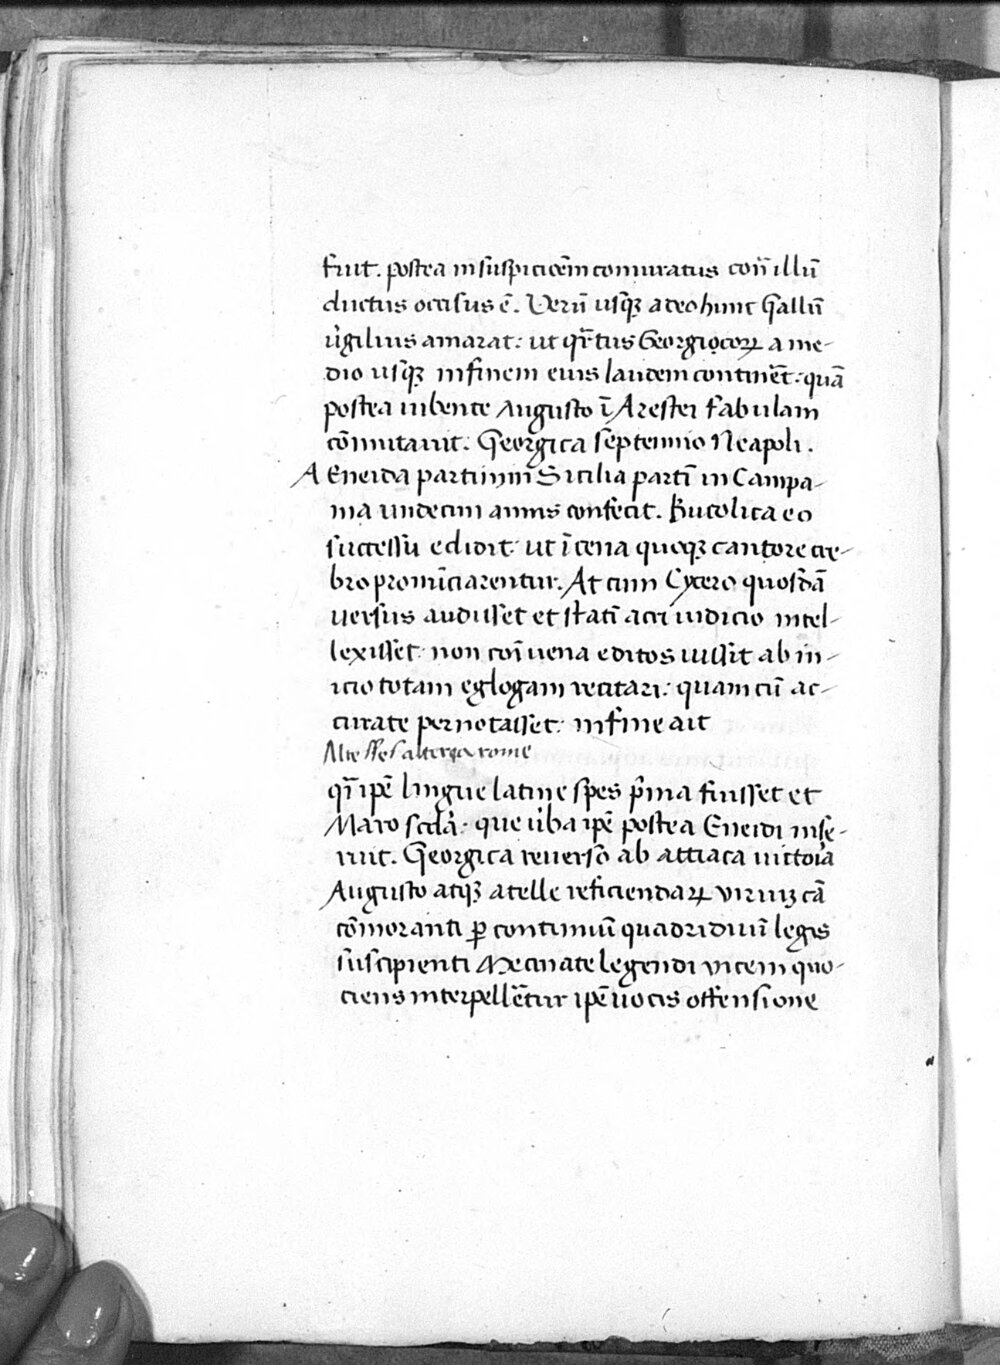 fuit. postea in suspicicēm coniuratus con̄ illū
ductus occisus ē. Verū usqꝫ adeo hunc Gallū
v̓gilius amarat: ut qr̄tus Georgicoꝝ a me-
dio usqꝫ in finem eius laudem contin̄et: quā
postea iubente Augusto ī Arestei fabulam
cōmutauit. Georgica septennio Neapoli.
AEneida partim in Sicilia partī in Campa-
nia undecim annis confecit. Bucolica eo
successu edidit: ut ī cena quoqꝫ cantore cre-
bro pronūciarentur. At cum Cycero quosdā
versus audisset et statī acri iudicio intel-
lexisset non com̄ vena editos iussit ab in-
icio totam eglogam recitari: quam cū ac-
curate pernotasset: in fine ait
Alte spes altera rome
qī ipē lingue latine spes pr̄ma fuisset et
Maro scdā: que v̓ba ipē postea Eneidi inse-
ruit. Georgica reuerso ab attiaca uictoria
Augusto atqꝫ atelle reficiendaꝝ viriuꝫ cā
cōmoranti ꝑ continuū quadriduū legis
suscipienti Mecinate legendi vicem quo-
ciens interpellēt̄ur ipē uocis offensione